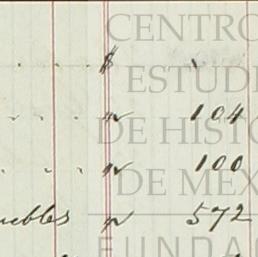 CENTRO
$
ESTUDI
" 104
DE HISTO
" 100
DE MEX
uebles " 572
FUNDAC